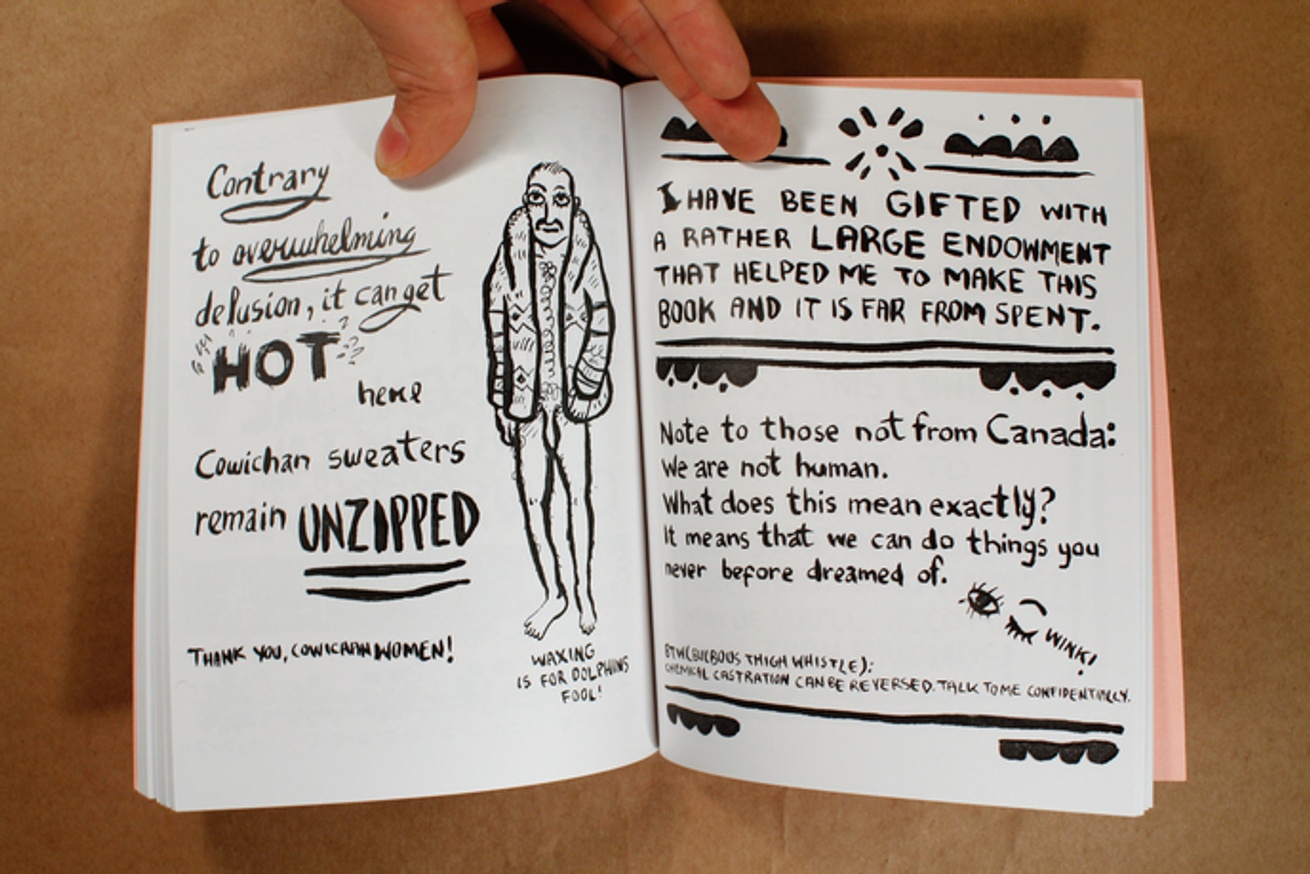 Contrary
to overwhelming
delusion, it can get
"HOT"
here
Cowichan sweaters
remain UNZIPPED
THANK YOU, COWICHAN WOMEN!
WAXING
IS FOR DOLPHINS
FOOL!
I HAVE BEEN GIFTED WITH
A RATHER LARGE ENDOWMENT
THAT HELPED ME TO MAKE THIS
BOOK AND IT IS FAR FROM SPENT.
Note to those not from Canada:
We are not human.
What does this mean exactly?
It means that we can do things you
never before dreamed of.
WINK!
BTW (BULBOUS THIGH WHISTLE):
CHEMICAL CASTRATION CAN BE REVERSED. TALK TO ME CONFIDENTIALLY.